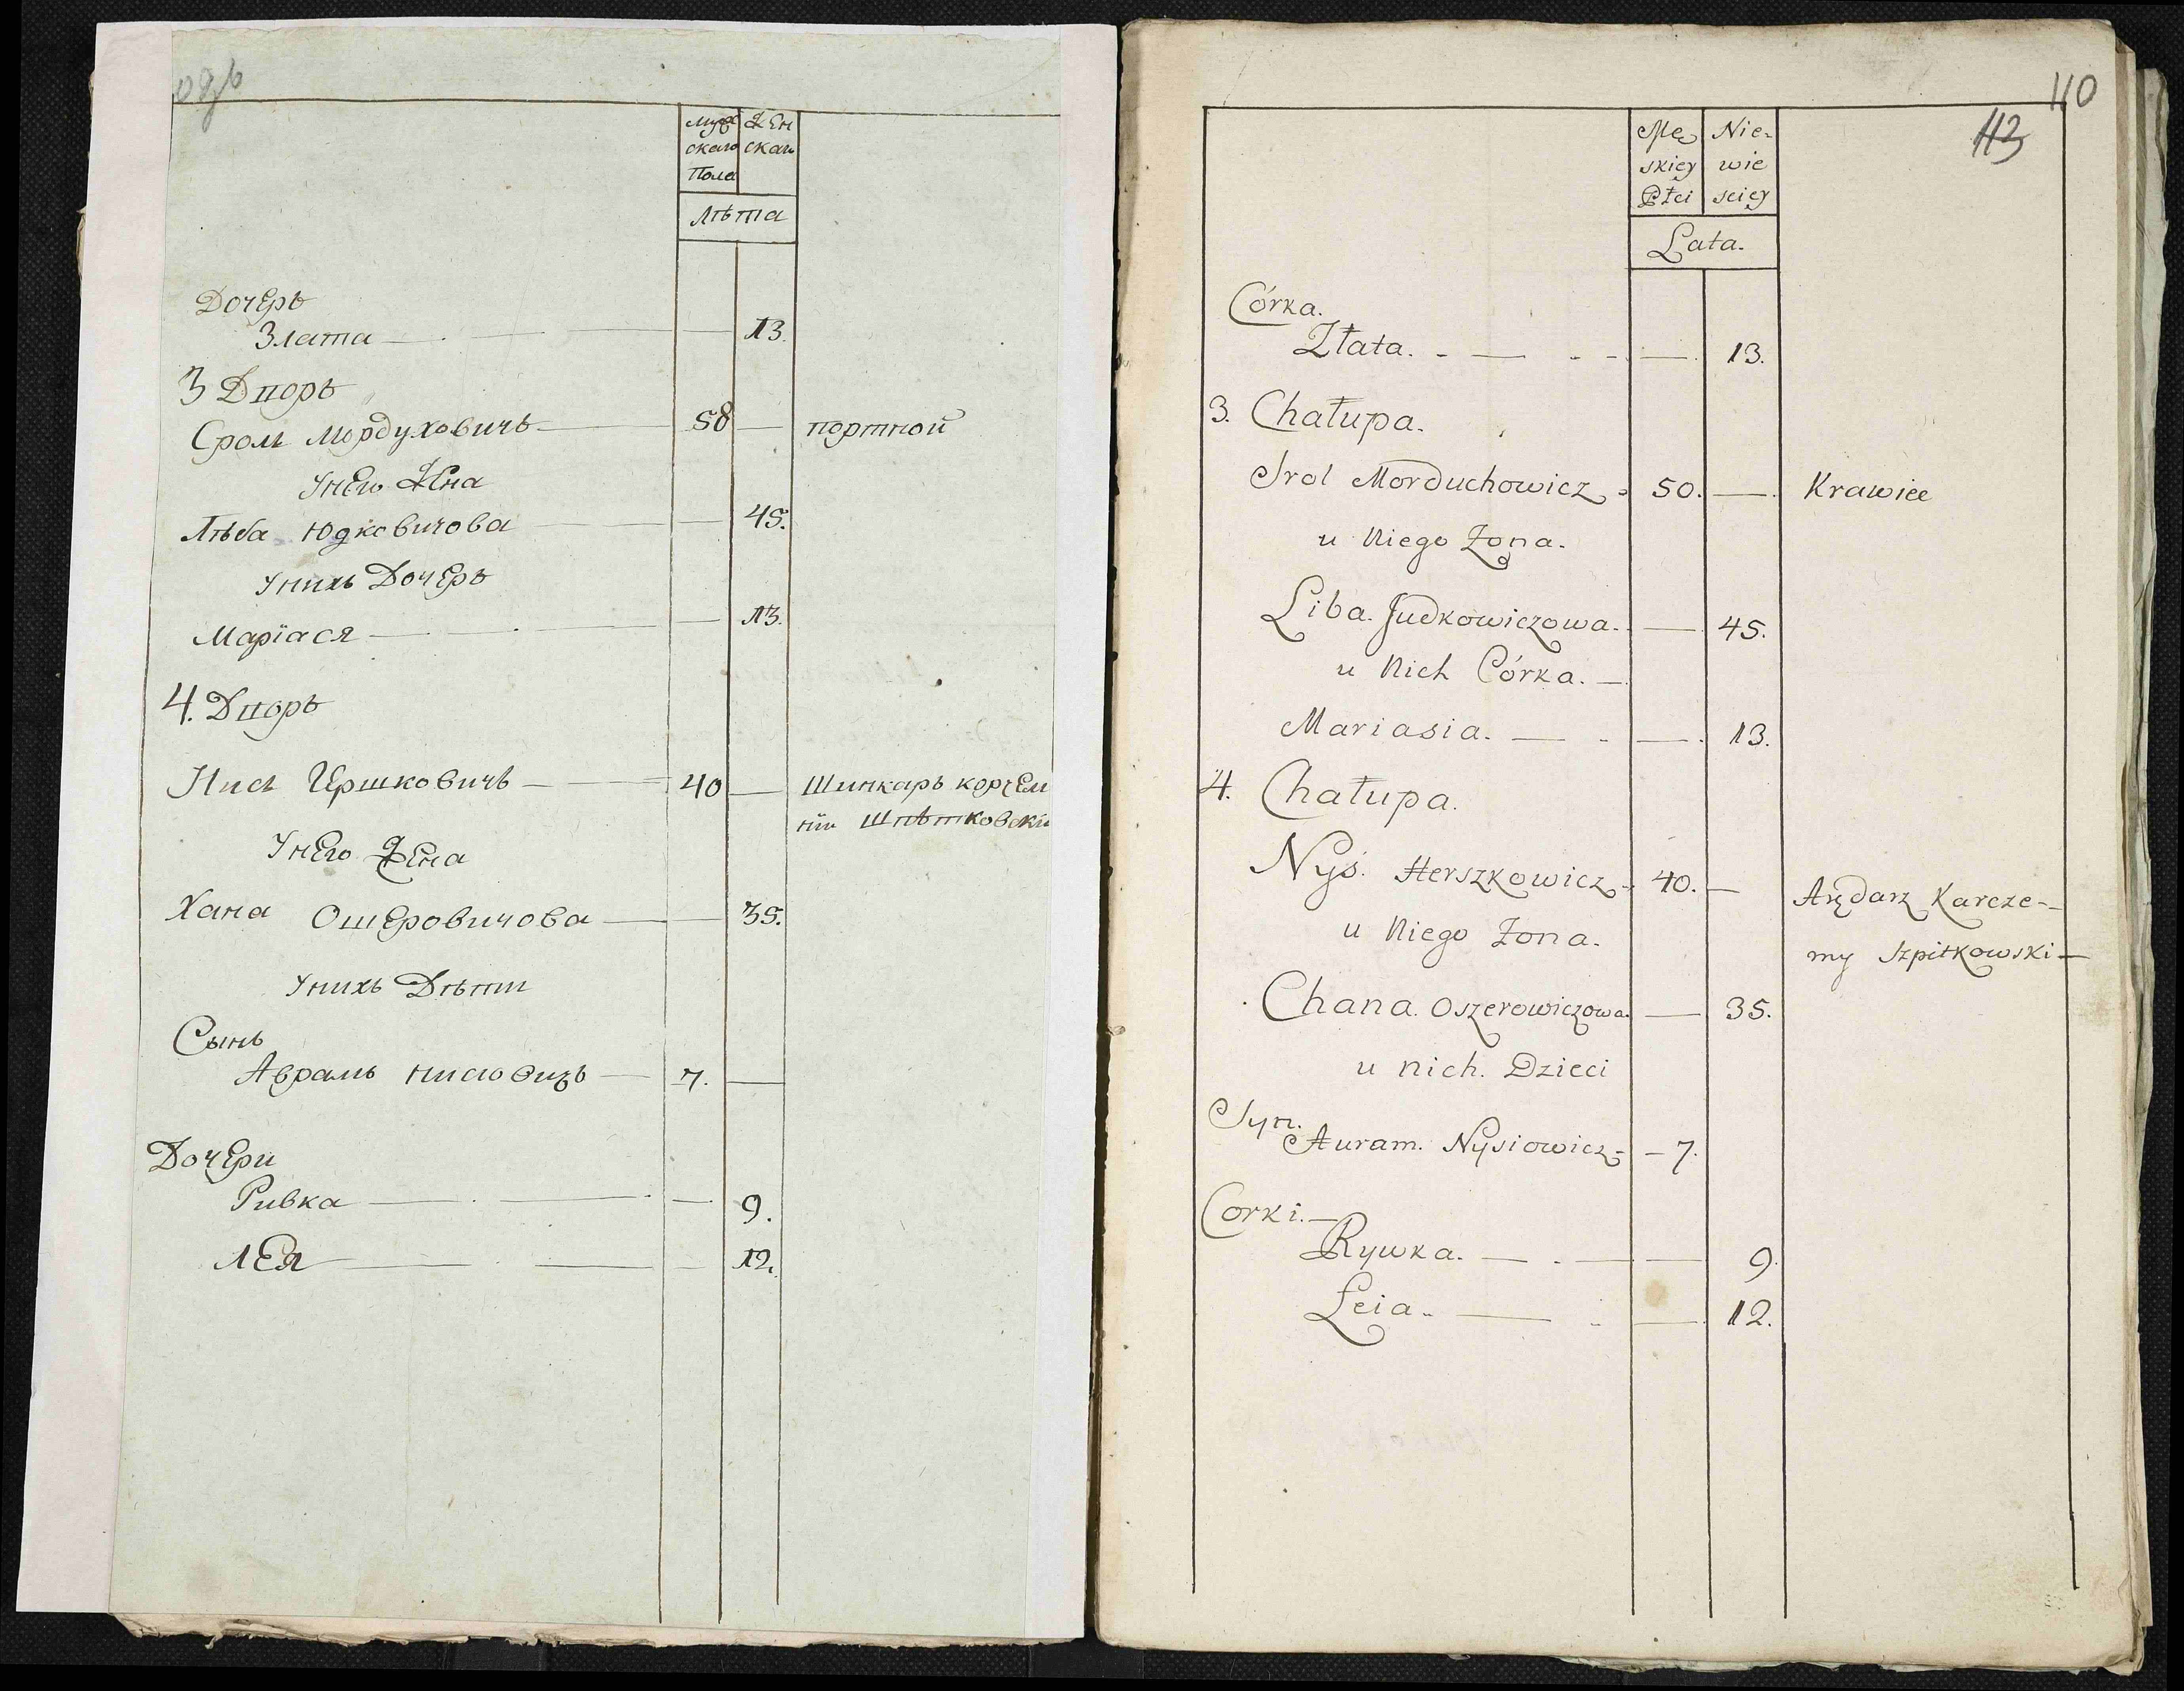 муж жен
скаго скаго
Пола
лѣта
Дочерь
Злата — 13.
3 Дворъ
Сролъ Мордуховичъ — 58 — портной
У него Жена
Лѣба Юдковичова — 45.
У нихъ Дочерь
Маріася — 13.
4. Дворъ
Нись Гершковичъ — 40 — Шинкарь корчем
ніи Шпѣтковски
У него Жена
Хана Ошеровичова — 35.
У нихъ Дѣти
Сынъ
Аврамъ Нисіовичъ — 7. —
Дочери
Ривка — 9.
Лея — 12.
110
113
Mę Nie-
skiey wie
Płci sciey
Lata.
Córka.
Złata. — 13.
3. Chałupa.
Srol Morduchowicz 50. — Krawiec
u Niego Żona.
Liba. Judkowiczowa. — 45.
u Nich Córka. —
Mariasia. — 13.
4. Chałupa.
Nyś. Herszkowicz 40. — Arędarz Karcze-
my Szpitkowski —
u Niego Żona.
Chana. Oszerowiczowa. — 35.
u nich. Dzieci
Syn.
Auram. Nysiowicz - 7.
Corki. —
Rywka. — 9.
Leia. — 12.